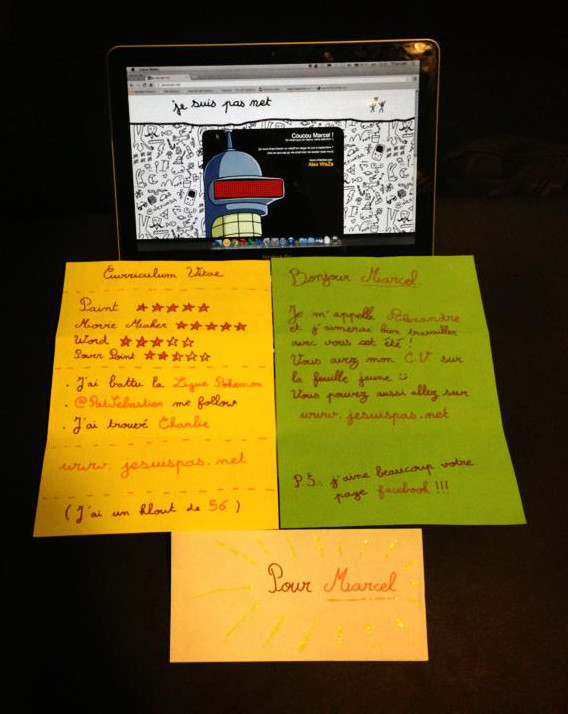 je suis pas net
Coucou Marcel !
Alex WaZa
Curriculum Vitae
Paint ★★★★★
Movie Maker ★★★★★
Word ★★★☆☆
Power Point ★★☆☆☆
. J'ai battu la Ligue Pokemon
. @PatSebastien me follow
. J'ai trouvé Charlie
www.jesuispas.net
(J'ai un klout de 56)
Bonjour Marcel
Je m'appelle Alexandre
et j'aimerai bien travailler
avec vous cet été !
Vous avez mon CV sur
la feuille jaune :)
Vous pouvez aussi allez sur
www.jesuispas.net
P.S.: j'aime beaucoup votre
page facebook !!!
Pour Marcel